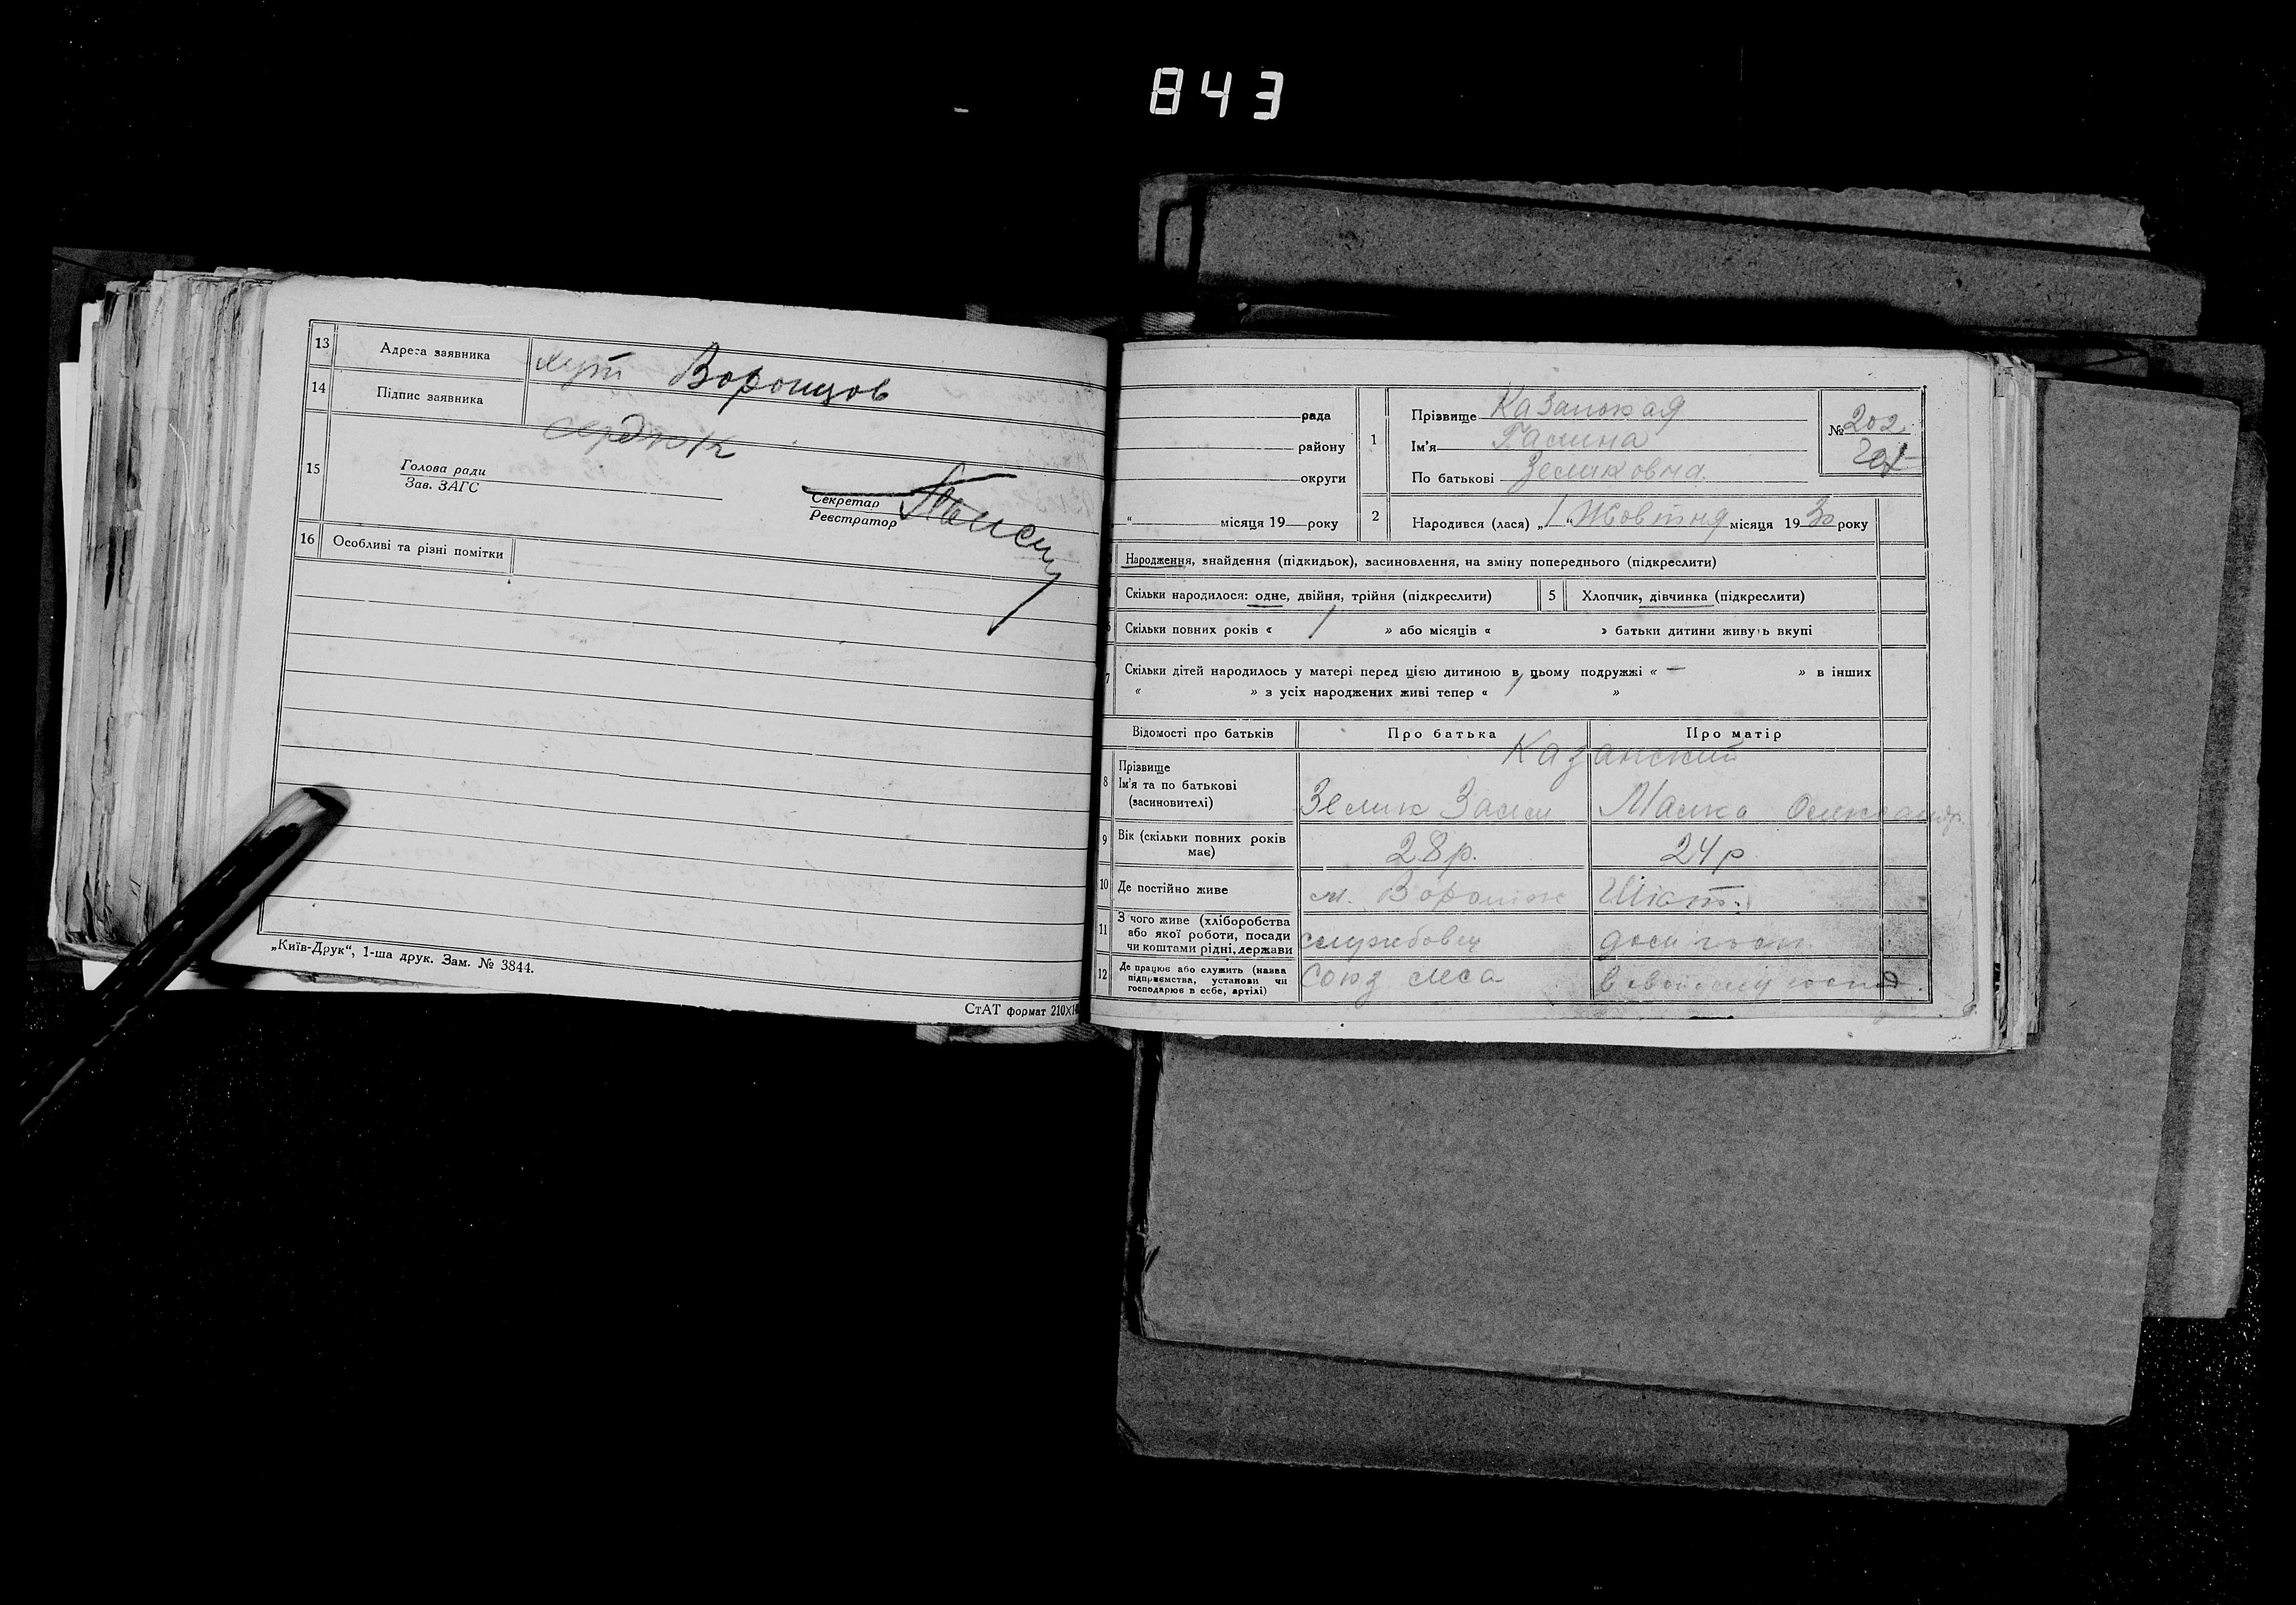 843
13 Адреса заявника хут Воронцов
14 Підпис заявника сердюк
15 Голова ради
Зав. ЗАГС
Секретар
Реєстратор
16 Особливі та різні помітки
„Київ-Друк“, 1-ша друк. Зам. № 3844.
СтАТ формат 210Х14
рада
району
округи
“ місяця 19 року
1 Прізвище Казанская
Ім'я Галина
По батькові Зеликовна
№ 202
2 Народився (лася) „1“ Жовтня місяця 1930 року
Народження, знайдення (підкидьок), засиновлення, на зміну попереднього (підкреслити)
Скільки народилося: одне, двійня, трійня (підкреслити) 5 Хлопчик, дівчинка (підкреслити)
Скільки повних років « 1 » або місяців « » батьки дитини живуть вкупі
7 Скільки дітей народилось у матері перед цією дитиною в цьому подружжі « — » в інших
« » з усіх народжених живі тепер « 1 »
Відомості про батьків Про батька Про матір
Казанский
8 Прізвище
Ім'я та по батькові
(засиновителі)
Зелик Малка Олександр.
9 Вік (скільки повних років
має)
28 р. 24 р
10 Де постійно живе м. Вороніж
11 З чого живе (хліборобства
або якої роботи, посади
чи коштами рідні, держави
службовец дом госп.
12 Де працює або служить (назва
підприємства, установи чи
господарює в себе, артілі)
Союз мса в своєму господ.